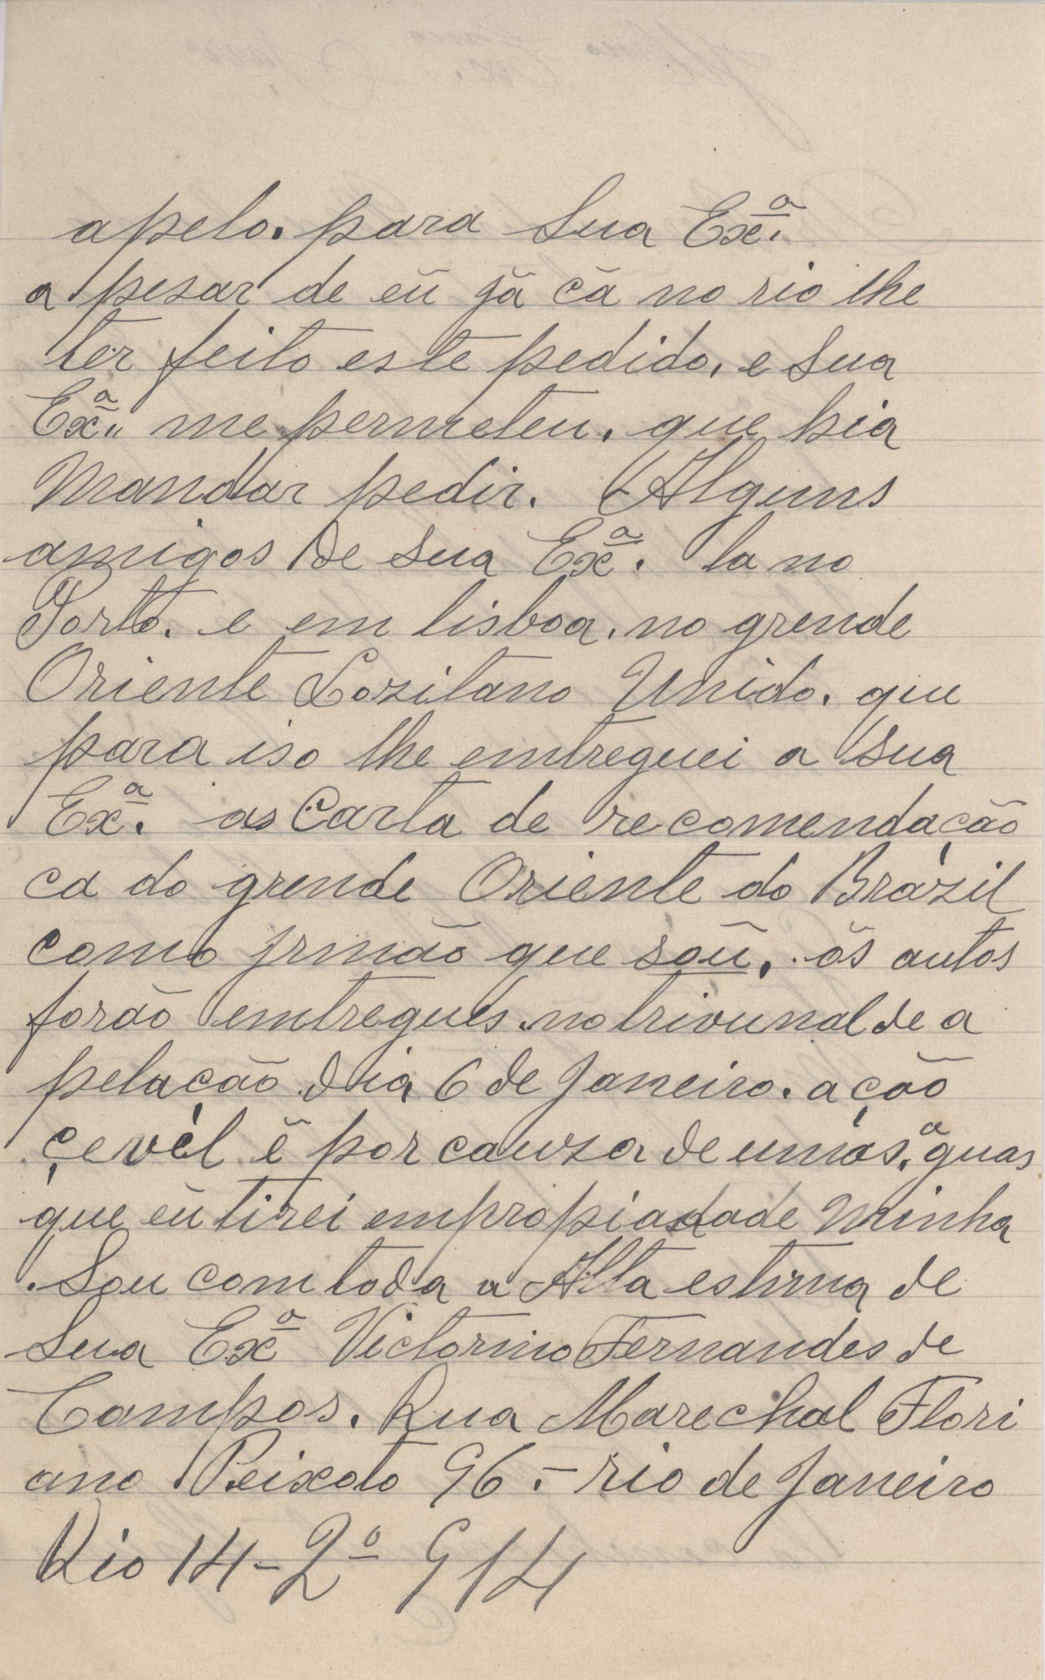 apelo. para Sua Exª.
a pesar de eũ jă că no rio lhe
ter feito este pedido, e Sua
Exª„ me permeteu. que hia
Mandar pedir. Alguns
amigos De Sua Exª. la no
Porto. e em lisboa. no grende
Oriente Lozitano Unido. que
para iso lhe emtreguei a Sua
Exª. as Carta de recomendação
ca do grende Oriente do Brázil
como jrmão que soũ. ŏs autos
forão emtregues. no trivunal de a
pelação dia 6 de Janeiro. ação
çevél ĕ por cauza de umas. aguas
que eũ tirei em propiadade Minha
. Sou com toda a Alta estima de
Sua Exª Victorino Fernandes de
Campos. Rua Marechal Flori
ano Peixoto 96. – rio de Janeiro
Rio 14–2º 914